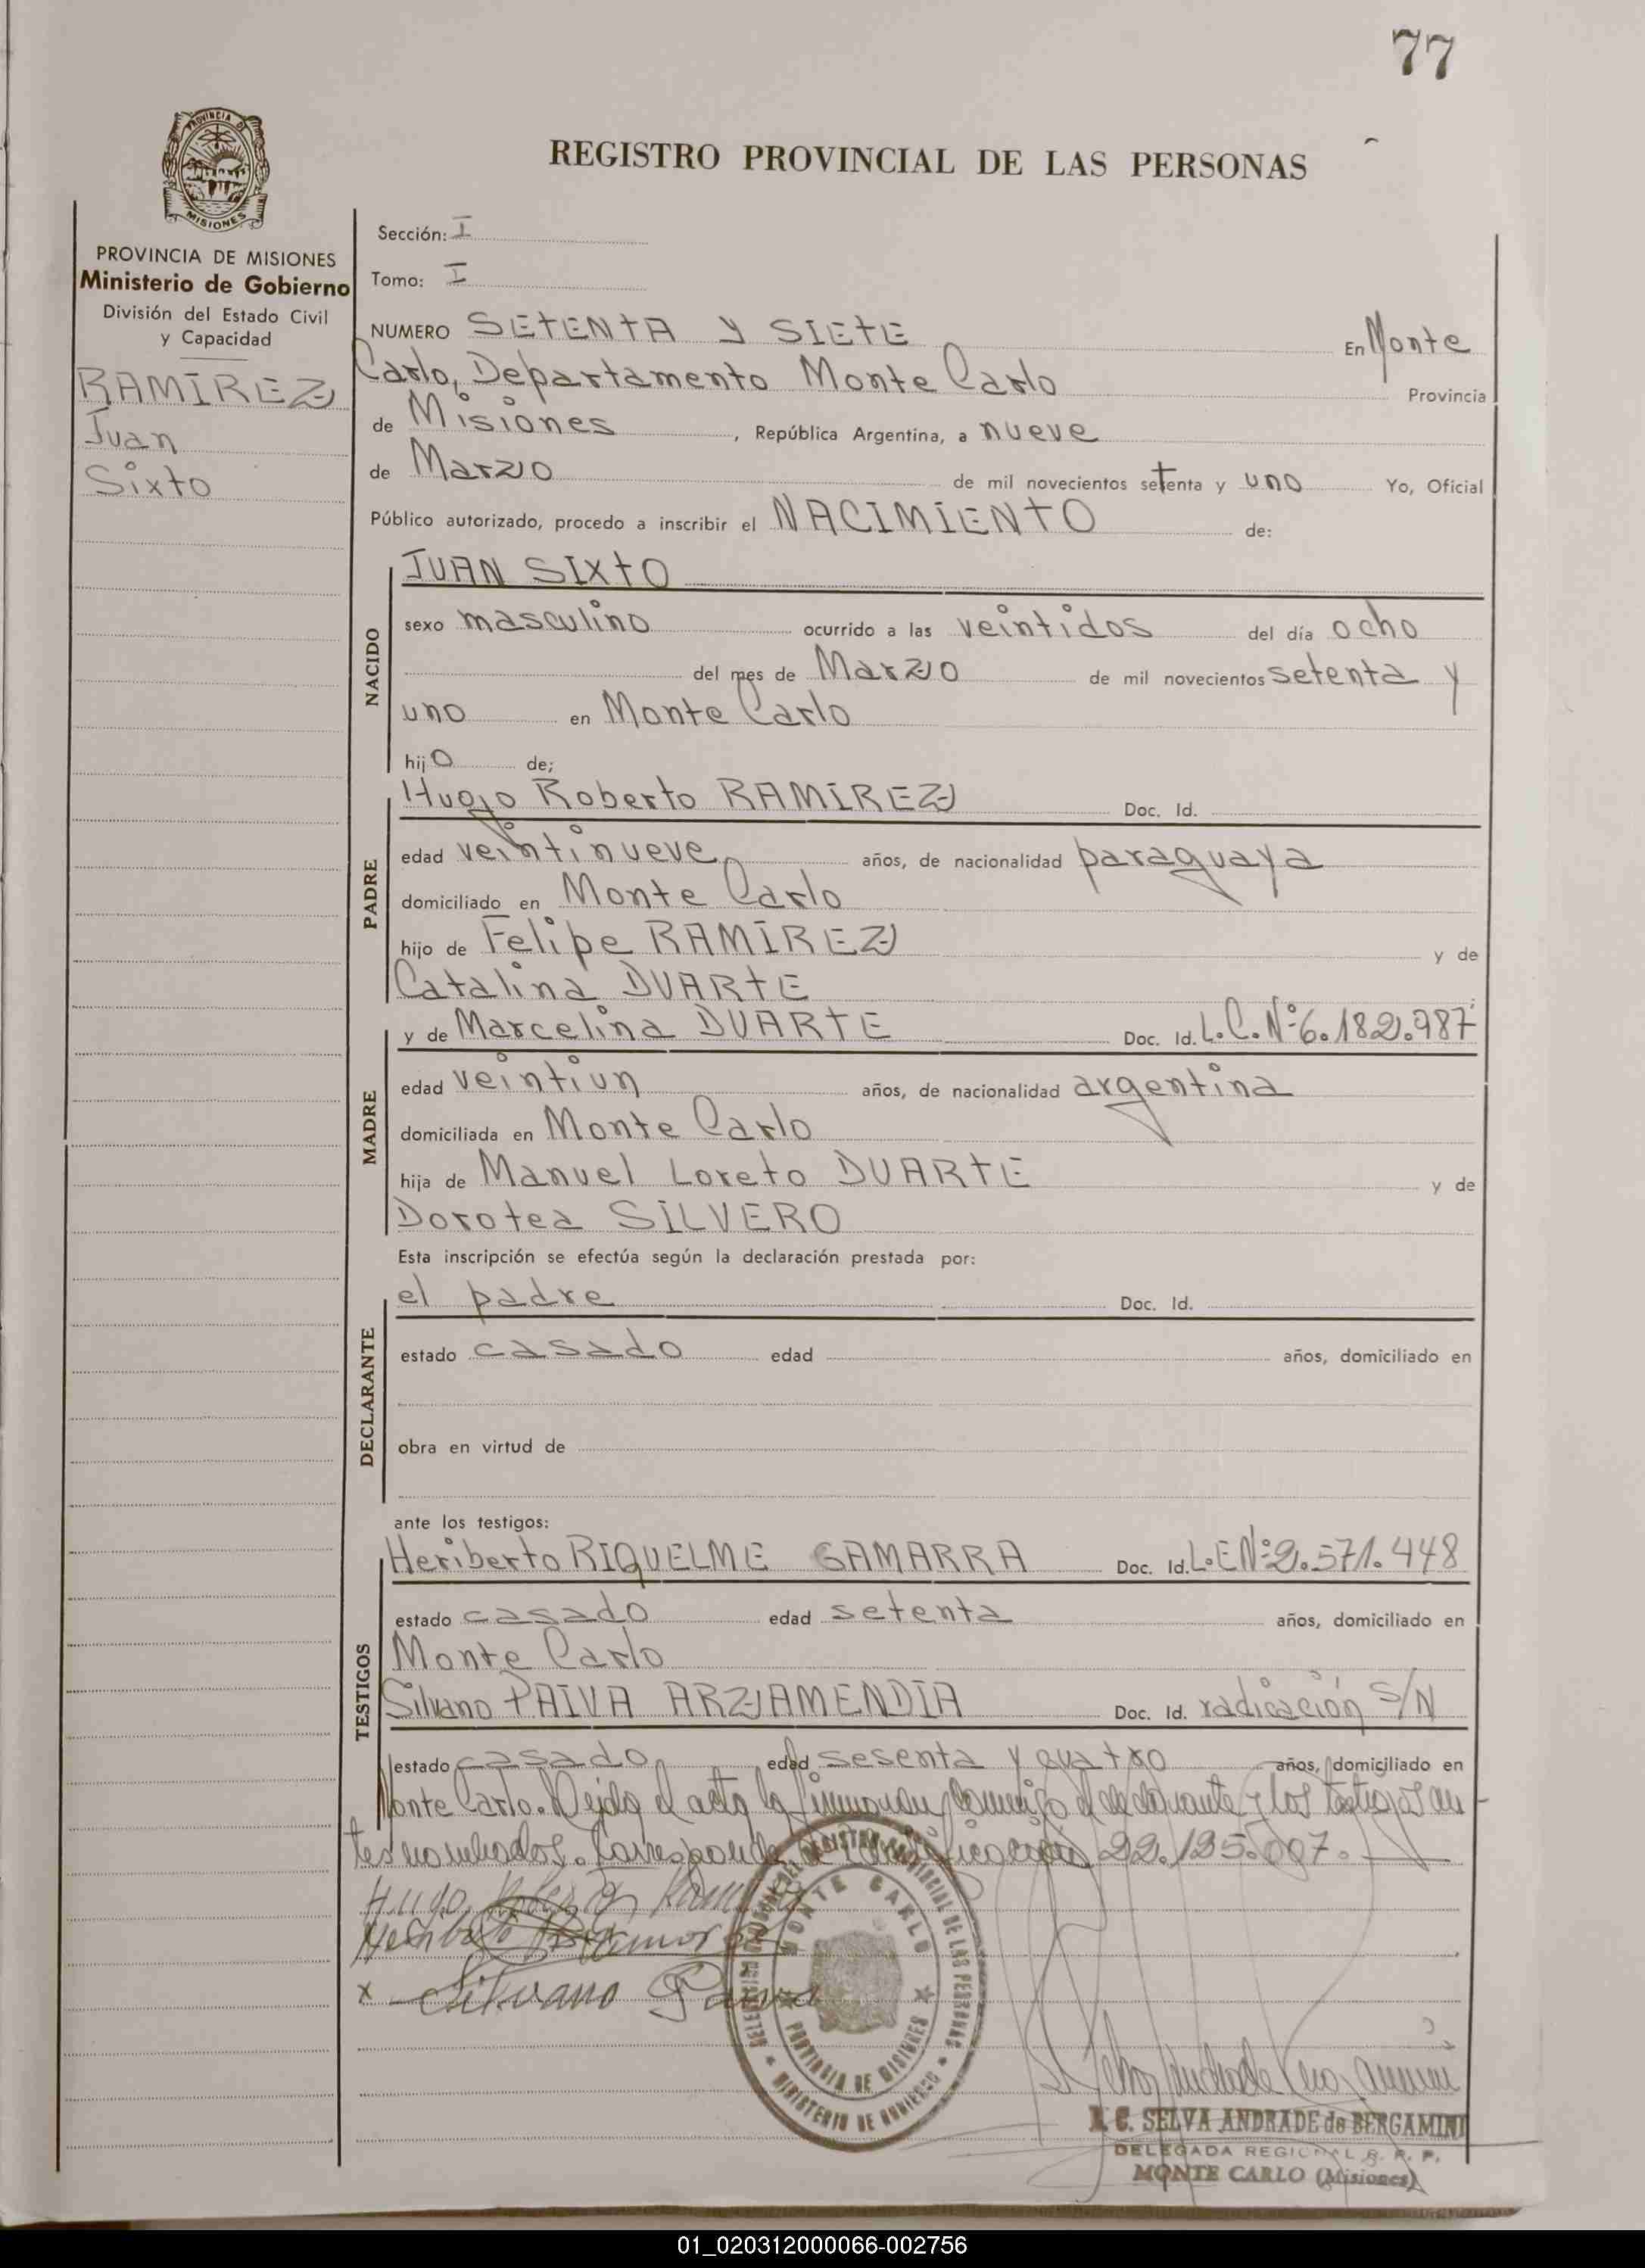 77
PROVINCIA DE
MISIONES
REGISTRO PROVINCIAL DE LAS PERSONAS
PROVINCIA DE MISIONES
Ministerio de Gobierno
División del Estado Civil
y Capacidad
RAMÍREZ
Juan
Sixto
Sección: I
Tomo: I
NUMERO SETENTA Y SIETE En Monte
Carlo, Departamento Monte Carlo Provincia
de Misiones, República Argentina, a nueve
de Marzo de mil novecientos setenta y uno Yo, Oficial
Público autorizado, procedo a inscribir el NACIMIENTO de:
NACIDO
JUAN SIXTO
sexo masculino ocurrido a las veintidos del día ocho
del mes de Marzo de mil novecientos setenta y
uno en Monte Carlo
hijo de;
PADRE
Hugo Roberto RAMIREZ Doc. Id.
edad veintinueve años, de nacionalidad paraguaya
domiciliado en Monte Carlo
hijo de Felipe RAMÍREZ y de
Catalina DUARTE
MADRE
y de Marcelina DUARTE Doc. Id. L.C.Nº 6.182.987
edad veintiun años, de nacionalidad argentina
domiciliada en Monte Carlo
hija de Manuel Loreto DUARTE y de
Dorotea SILVERO
Esta inscripción se efectúa según la declaración prestada por:
DECLARANTE
el padre Doc. Id.
estado casado edad años, domiciliado en
obra en virtud de
ante los testigos:
TESTIGOS
Heriberto RIQUELME GAMARRA Doc. Id. L.E Nº 2.571.448
estado casado edad setenta años, domiciliado en
Monte Carlo
Silvano PAIVA ARZAMENDIA Doc. Id. radicación S/N
estado casado edad sesenta y cuatro años, domiciliado en
Monte Carlo. Leida el acta la firmaron conmigo el declarante y los testigos an
tes nombrados. Corresponde identificación 22.135.007.
Hugo Ramirez
Silvano Paiva
DELEGACION REGIONAL DEL REGISTRO PROVINCIAL DE LAS PERSONAS
MONTE CARLO
PROVINCIA DE MISIONES
MINISTERIO DE GOBIERNO
C. SELVA ANDRADE de BERGAMINI
DELEGADA REGIONAL R. P. P.
MONTE CARLO (Misiones)
01_020312000066-002756